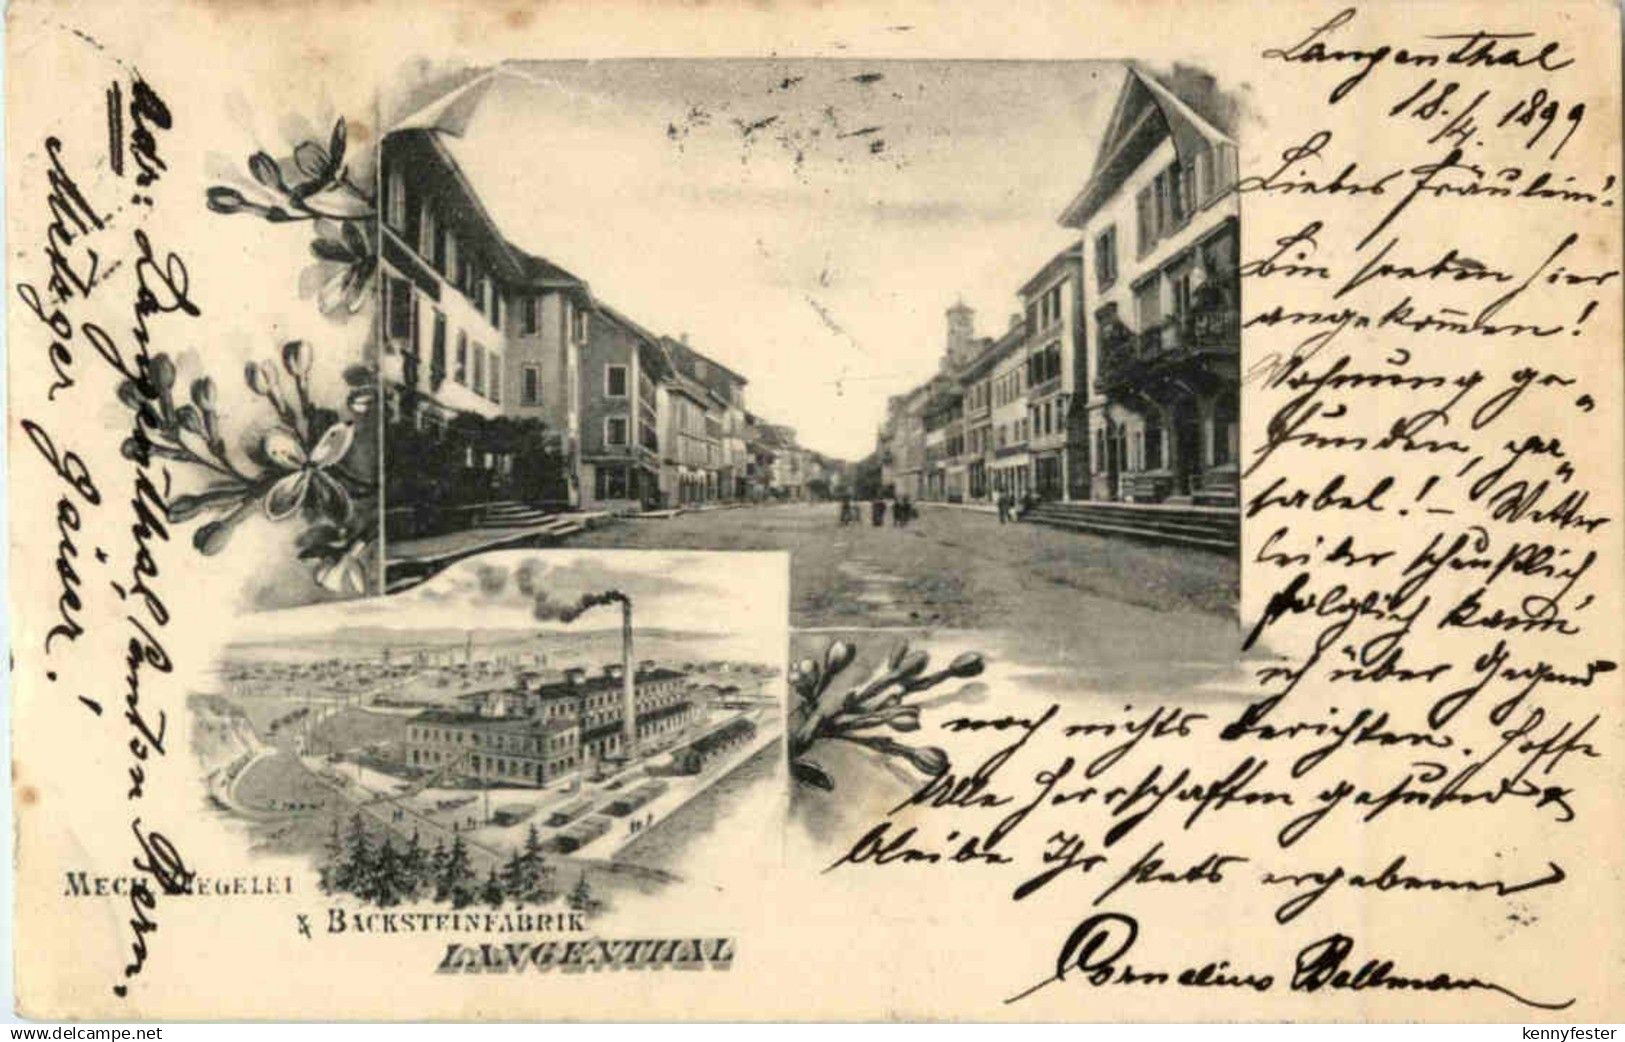 Langenthal
18./4. 1899
Liebes Fräulein!
Bin soeben hier
angekommen!
Wohnung ge„
funden,
habel! – Wetter
leider scheußlich,
folglich kann
ich über Gegend
noch nichts berichten. Hoffe
Alle Herrschaften gesund &
bleibe Ihr stets ergebener
Cornelius Bellmann
Adr: Langenthal, Canton Bern.
Metzger Gaiser!
MECH. ZIEGELEI
& BACKSTEINFABRIK
LANGENTHAL
kennyfester